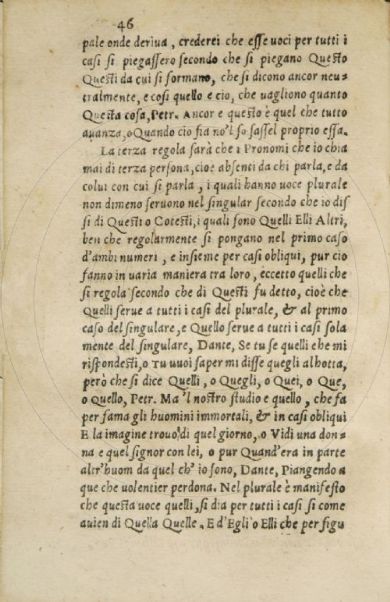 46
pale onde deriva, crederei che esse voci per tutti i
casi si piegassero secondo che si piegano Questo
Questi da cui si formano, che si dicono ancor neu-
tralmente, e cosi quello e cio, che vagliono quanto
Questa cosa, Petr. Ancor e questo è quel che tutto
avanza, o Quando cio fia no'l so fassel proprio essa.
La terza regola sarà che i Pronomi che io chia
mai di terza persona, cioè absenti da chi parla, e da
colui con cui si parla, i quali hanno voce plurale
non dimeno servono nel singular secondo che io dis
si di Questi o Cotesti, i quali sono Quelli Elli Altri,
ben che regolarmente si pongano nel primo caso
d'ambi numeri, e insieme per casi obliqui, pur cio
fanno in varia maniera tra loro, eccetto quelli che
si regola secondo che di Questi fu detto, cioè che
Quelli serve a tutti i casi del plurale, & al primo
caso del singulare, e Quello serve a tutti i casi sola
mente del singulare, Dante, Se tu se quelli che mi
rispondesti, o Tu vuoi saper mi disse quegli alhotta,
però che si dice Quelli, o Quegli, o Quei, o Que,
o Quello, Petr. Ma 'l nostro studio e quello, che fa
per fama gli huomini immortali, & in casi obliqui
E la imagine trovo, di quel giorno, o Vidi una don=
na e quel signor con lei, o pur Quand'era in parte
altr'huom da quel ch' io sono, Dante, Piangendo a
que che volentier perdona. Nel plurale è manifesto
che questa voce quelli, si dia per tutti i casi si come
avien di Quella Quelle. E d'Egli o Elli che per figu